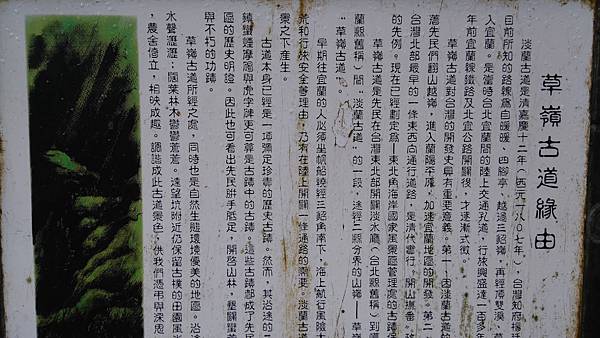 草嶺古道緣由
淡蘭古道是清嘉慶十二年（西元一八０七年），台灣知府楊廷
目前所知的路線為自暖暖、四腳亭，越過三貂嶺，再經頂雙溪、草
入宜蘭。是當時台北宜蘭間的陸上交通孔道，行旅興盛達一百多年
年前宜蘭線鐵路及北宜公路開闢後，才逐漸式微。
草嶺古道對台灣的開發史具有重要意義。第一，因淡蘭古道的
著先民們翻山越嶺，進入蘭陽平原，加速宜蘭地區的開發。第二，
台灣北部最早的一條東西向通行道路，是清代實行「開山撫番」
的先例。現在已經劃定為—東北角海岸國家風景區管理處的古蹟保
草嶺古道是先民在台灣東北部開闢淡水廳（台北縣舊稱）到噶
蘭縣舊稱）間“淡蘭古道”的一段，途經二縣分界的山嶺——草嶺
“草嶺古道”。
早期往宜蘭的人必須坐帆船繞經三貂角南下，海上航行風險大
荒和行旅安全等理由，乃有在陸上開闢一條通路的需要。淡蘭古道
景之下產生。
古道本身已經是一項彌足珍貴的歷史古蹟。然而，其沿途的
鎮蠻煙摩碣與虎字碑更可算是古道中的古蹟。這些古蹟都成了先民
區的歷史明證。因此也可看出先民胼手胝足，開啓山林，墾闢蠻荒
與不朽的功蹟。
草嶺古道所經之處，同時也是自然生態環境優美的地區。沿途
水聲瀝瀝；闊葉林木鬱鬱蒼蒼。遠望坑附近仍保留古樸的田園風光
，農舍倚立，相映成趣。調諧成此古道景色，供我們憑弔與深思